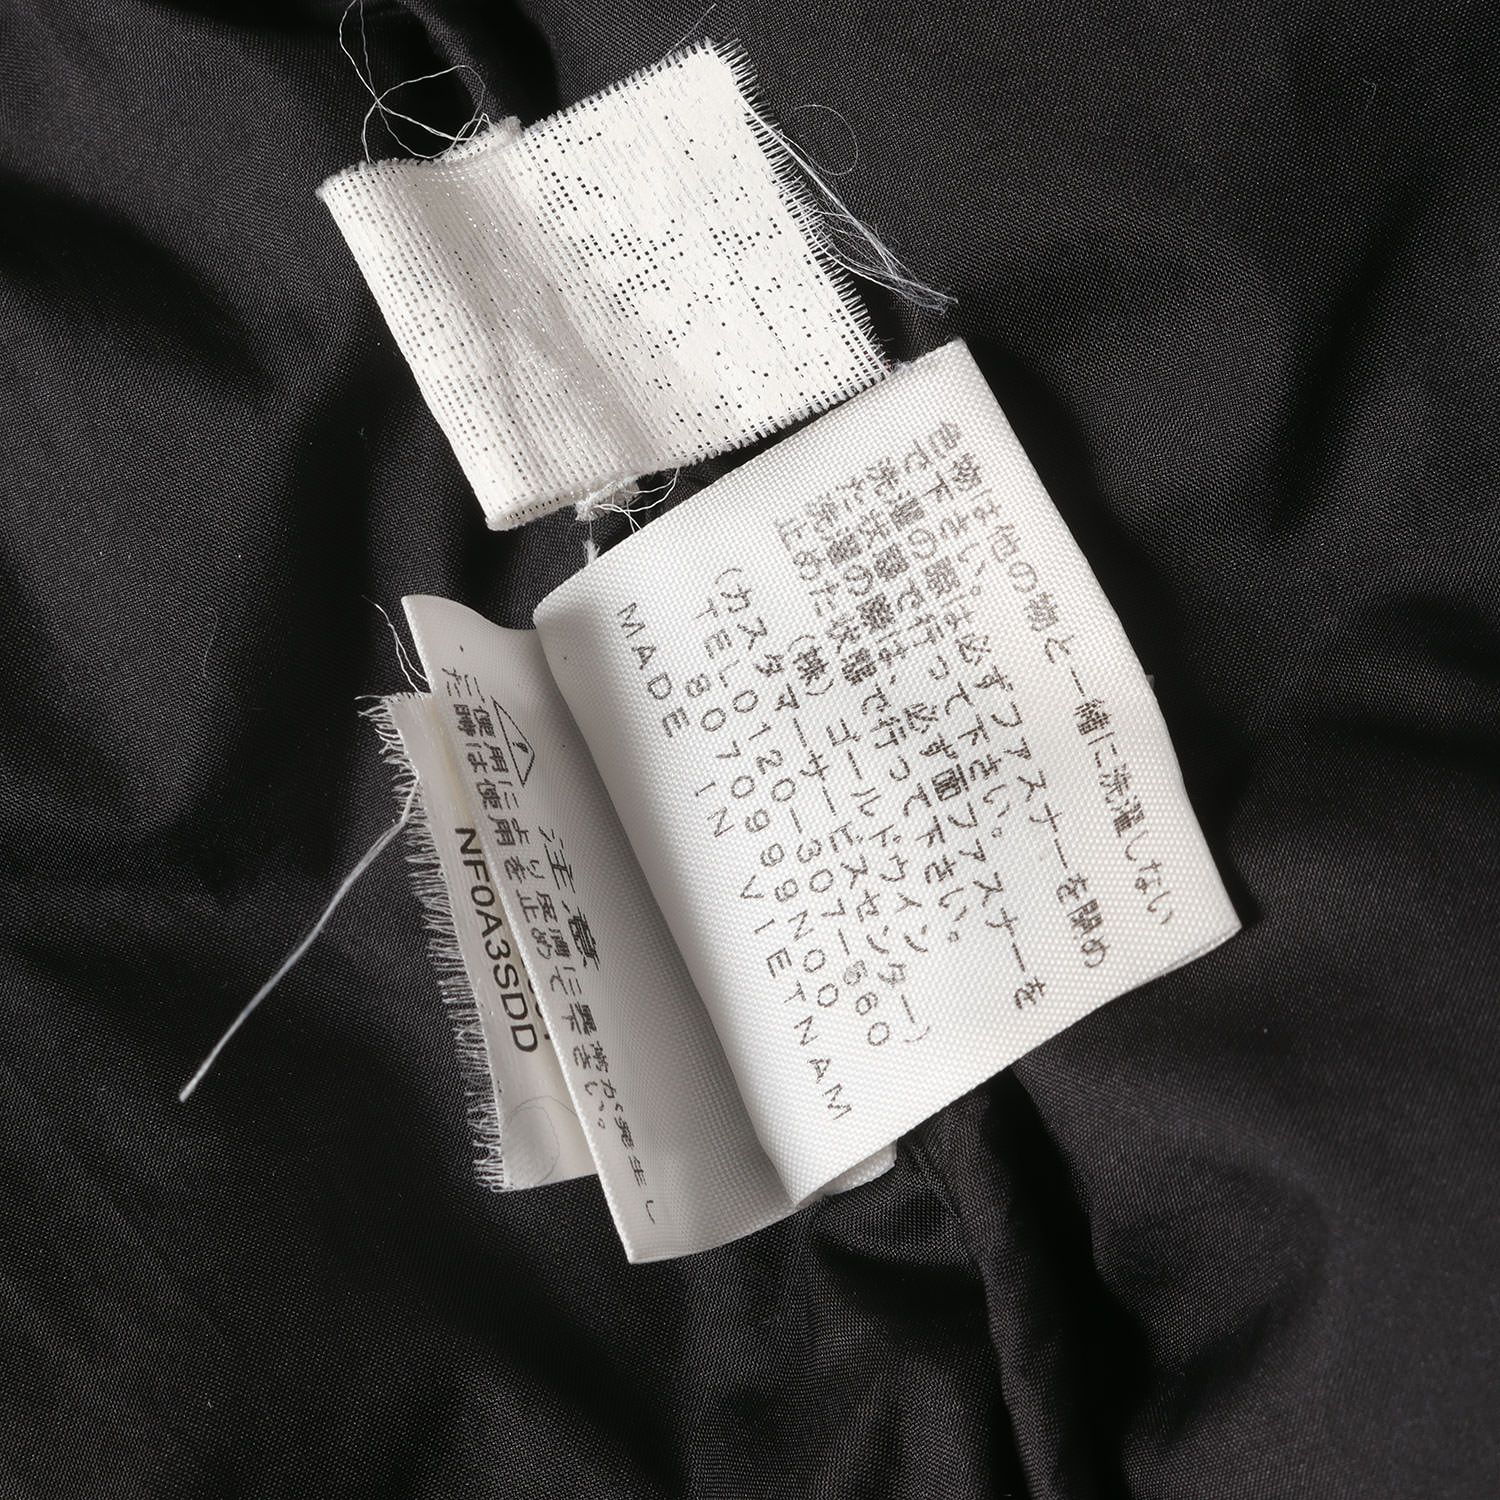 色物は他の物と一緒に洗濯しない
で下さい。
洗濯の際は必ずファスナーを閉め
た状態で行って下さい。
洗濯の際は、必ず面ファスナーを
止めた状態で行って下さい。
(株)ゴールドウイン
(カスタマーサービスセンター)
TEL0120-307-560
MADE IN VIETNAM
注意
・ご使用により皮膚に異常が発生し
た時は使用を止めて下さい。
NF0A3SDD